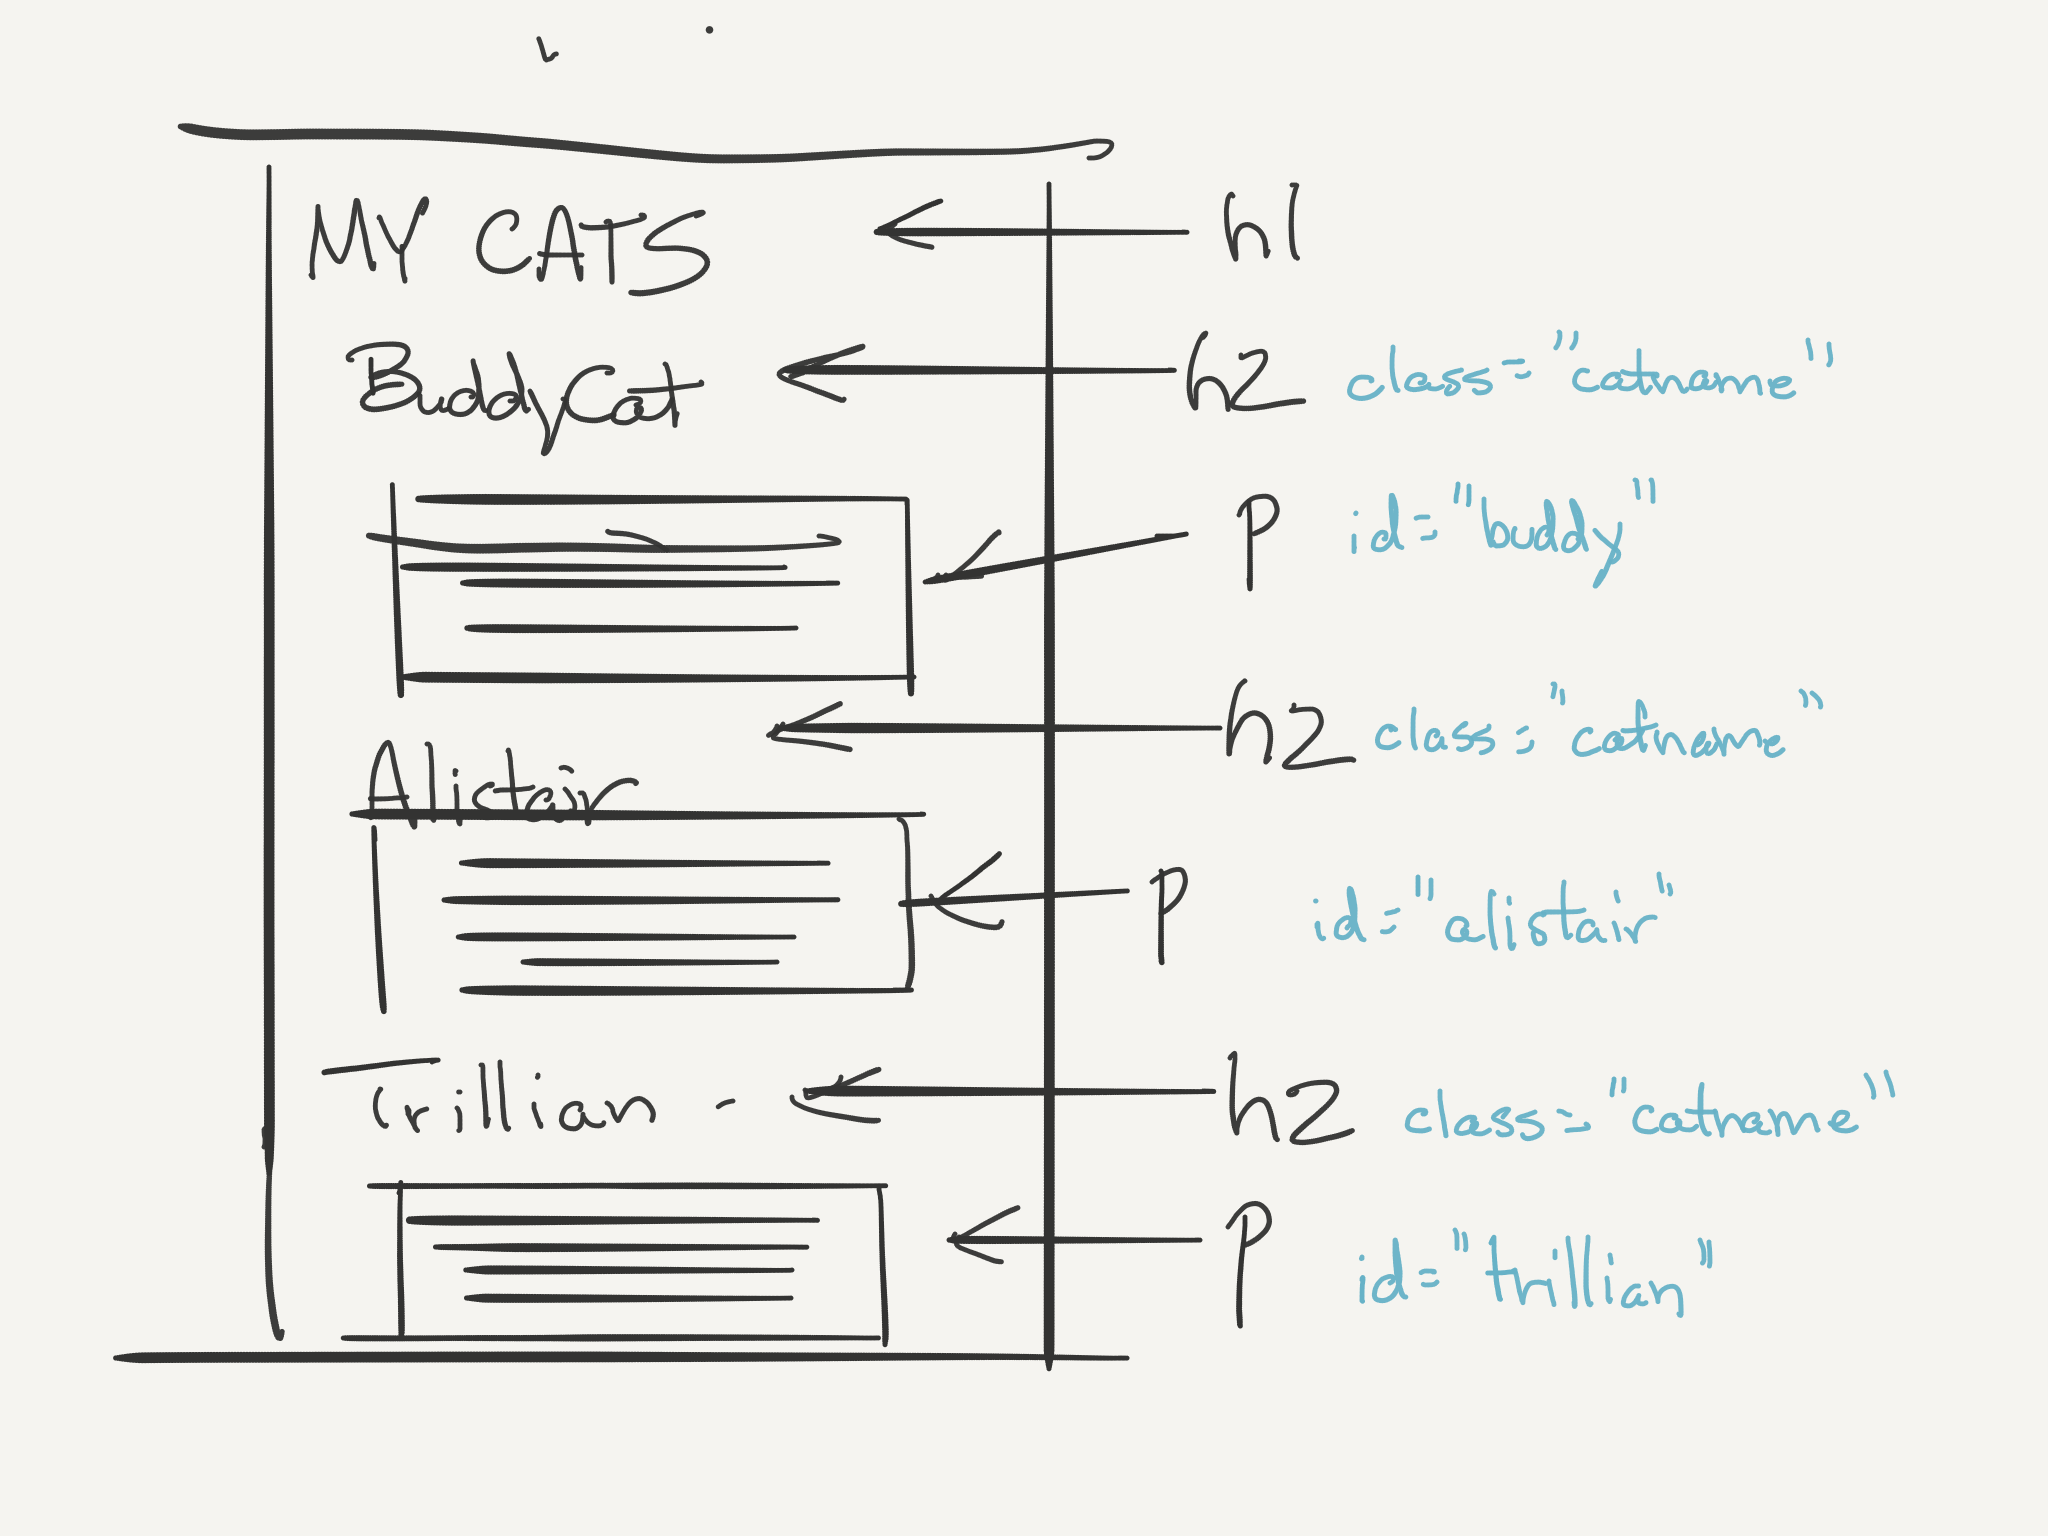 MY CATS h1
BuddyCat h2 class="catname"
p id="buddy"
h2 class="catname"
Alistair
p id="alistair"
Trillian - h2 class="catname"
p id="trillian"